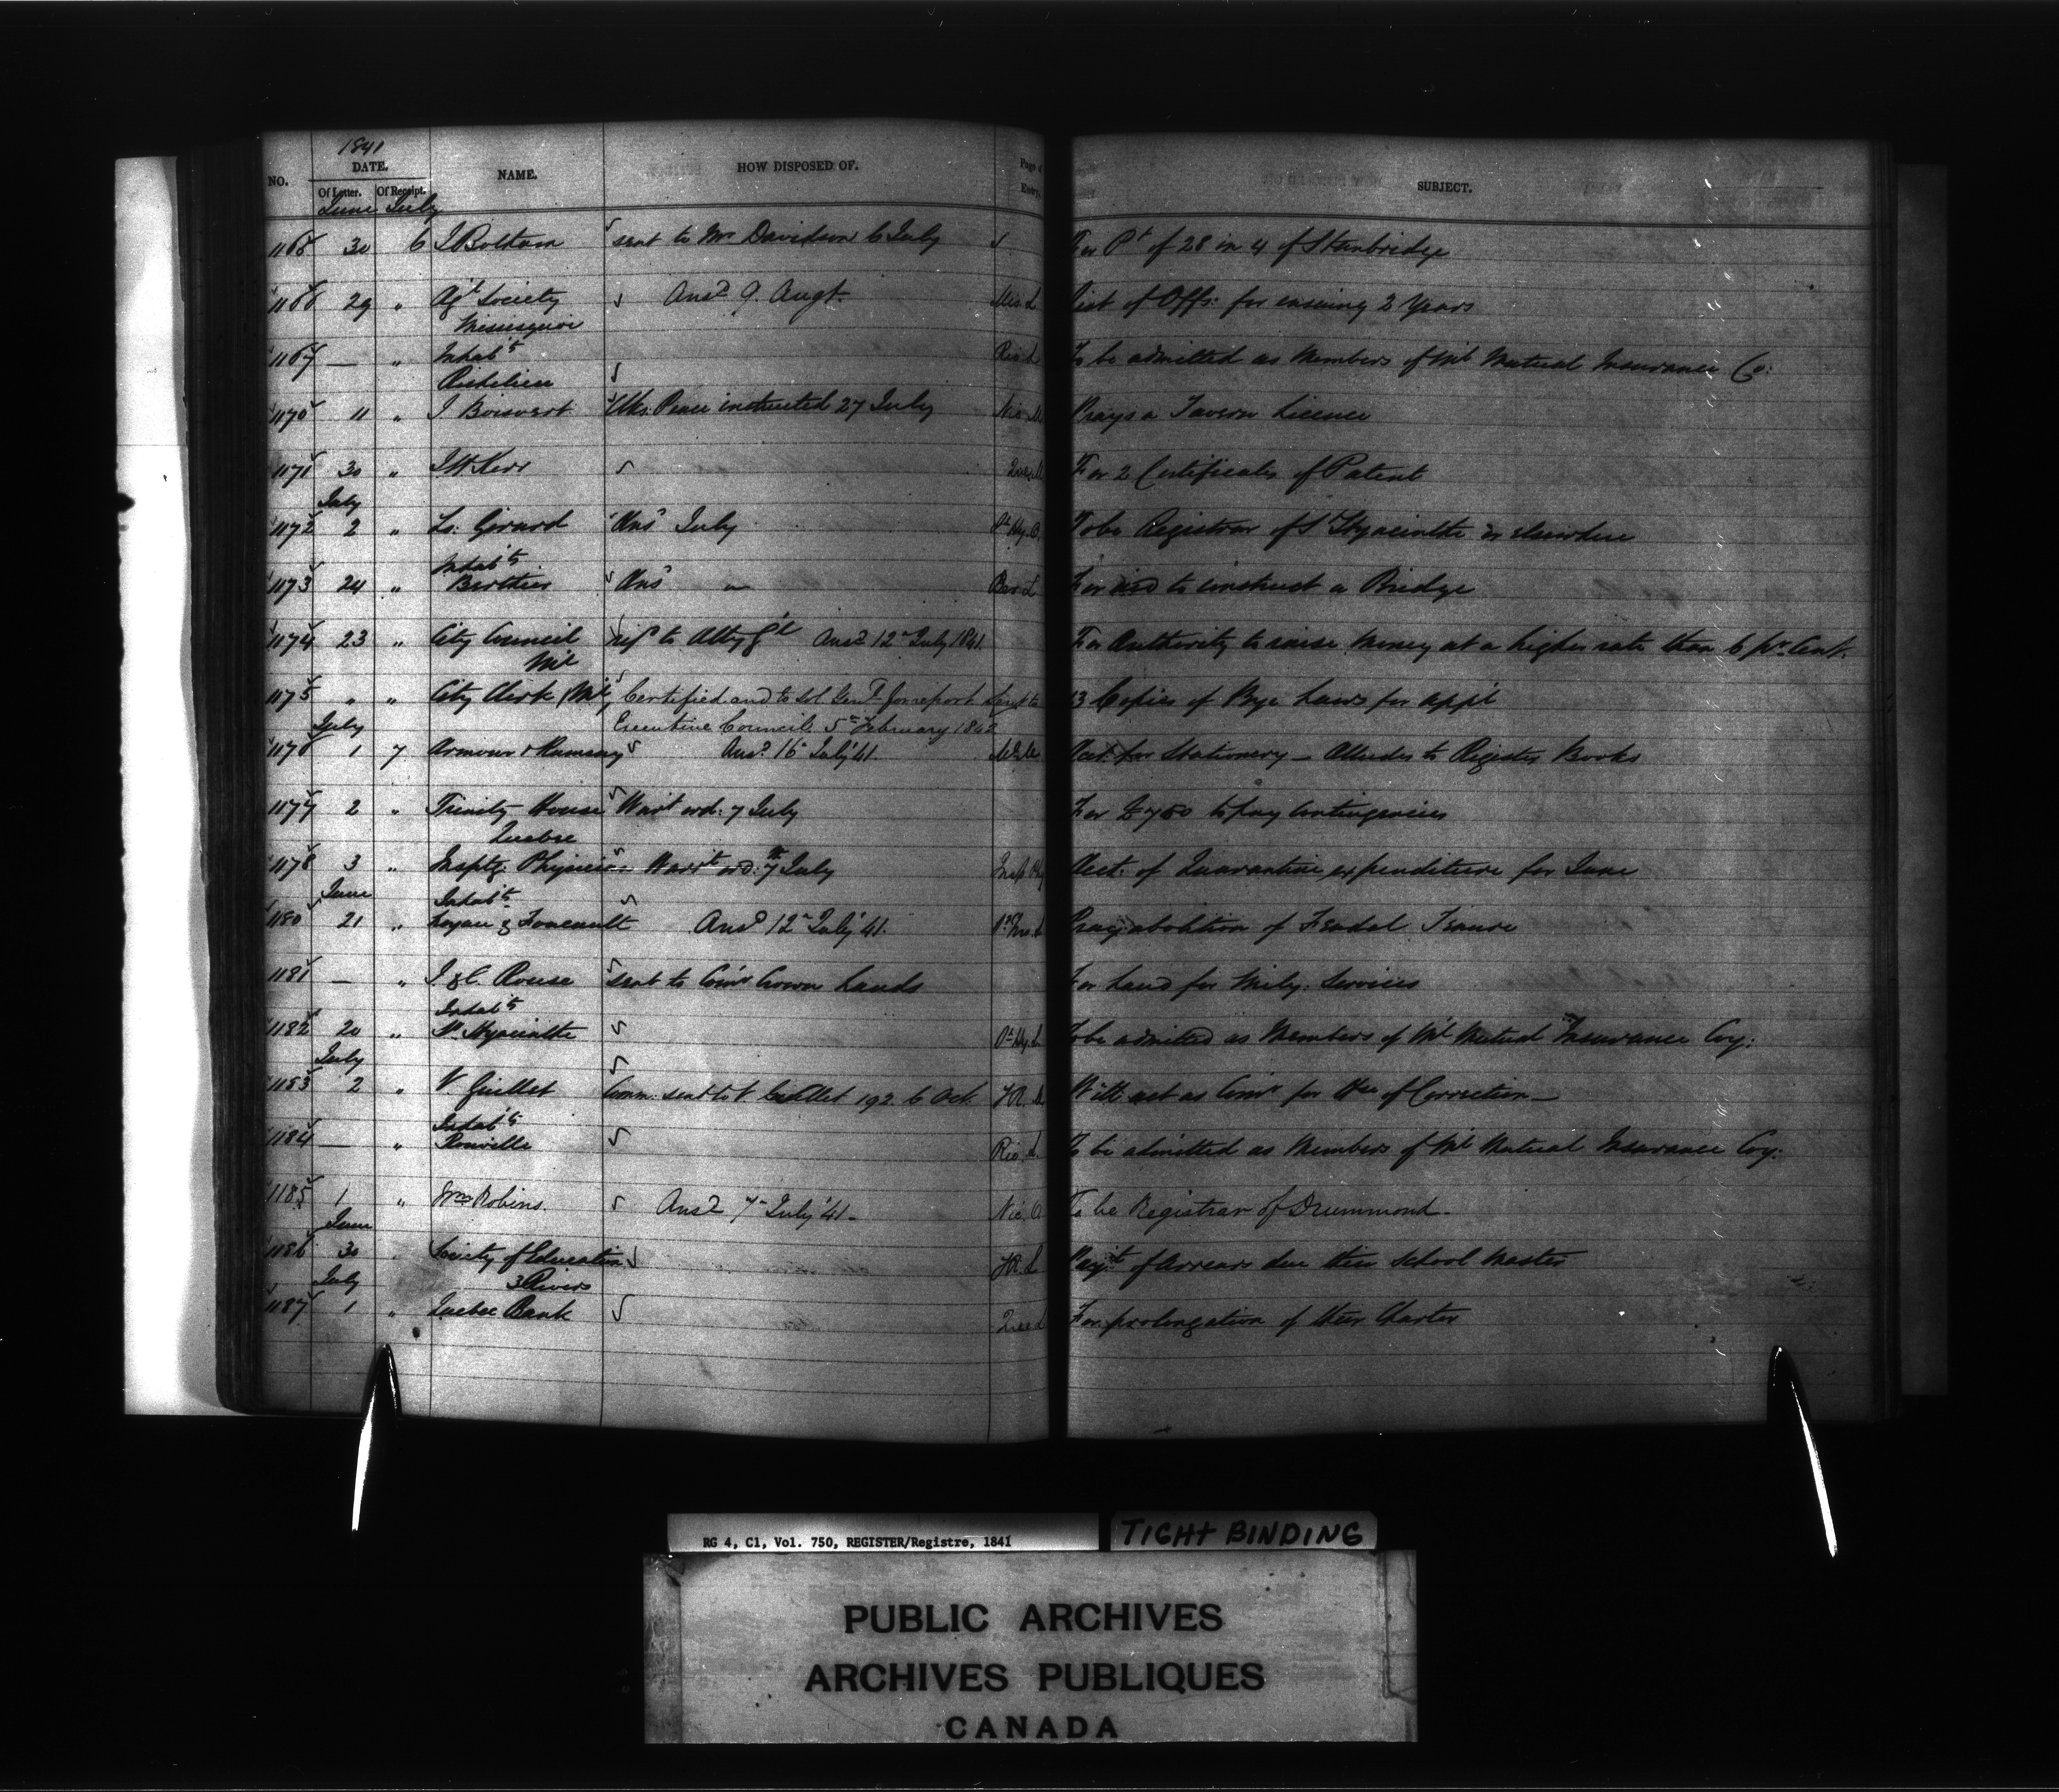 1841
NO. DATE. NAME. HOW DISPOSED OF. Page of Entry. SUBJECT.
Of Letter. Of Receipt.
June July
1165 30 6 J Boltom sent to Mr Davidson 6 July For Pt of 28 in 4 of Stanbridge
1166 29 " Agl Society Ansd 9. Augt. Mis. L List of Offs: for ensuing 2 Years
Missisquoi
1167 — " Inhabts Rich L To be admitted as Members of Ml Mutual Insurance Co:
Richelieu
1170 11 " J. Boisvert Clks. Peace instructed 27 July Nic. M Prays a Tavern Licence
1171 30 " J H. Kerr Quebec M For 2 Certificates of Patent
July
1172 2 " Ls. Girard Ans July St Hy. O. To be Registrar of St Hyacinthe or elsewhere
Inhabts
1173 24 " Berthier Ans " Ber L For aid to construct a Bridge
1174 23 " City Council refd to Atty Gl Ansd 12th July 1841. For Authority to raise Money at a higher rate than 6 pr. Cent.
Ml
1175 " " City Clerk Ml Certified and to Sol Genl for report Sent to 13 Copies of Bye Laws for appl
July Executive Council 5th February 1842
1176 1 7 Armour & Ramsay Ansd. 16th July '41. Acct. for Stationery — Alludes to Register Books
1177 2 " Trinity House Warrt ord: 7 July For £750 to pay Contingencies
Quebec
1178 3 " Insptg. Physician Warrt ord: 7 July Insp Phy Acct. of Quarantine expenditure for June
June Inhabts
1180 21 " Noyan & Foucault Ansd 12th July '41. Pray abolition of Feudal Tenure
1181 — " J. & C. Rouse sent to Comr Crown Lands For Land for Mily. Services
Inhabts
1182 20 " St. Hyacinthe St Hy. L To be admitted as Members of Ml Mutual Insurance Coy:
July
1183 2 " V Guillet Comn: sent to V Guillet 192. 6 Oct. 3R. M Will act as Comr for Hse of Correction —
Inhabts
1184 — " Rouville Ric. L. To be admitted as Members of Ml Mutual Insurance Coy:
1185 1 " Wm Robins. Ansd 7th July '41 — Nic. O To be Registrar of Drummond —
June
1186 30 " Society of Education 3R. L Paymt of Arrears due their School Master
July 3 Rivers
1187 1 " Quebec Bank Que L For prolongation of their Charter
RG 4, C1, Vol. 750, REGISTER/Registre, 1841
TIGHT BINDING
PUBLIC ARCHIVES
ARCHIVES PUBLIQUES
CANADA